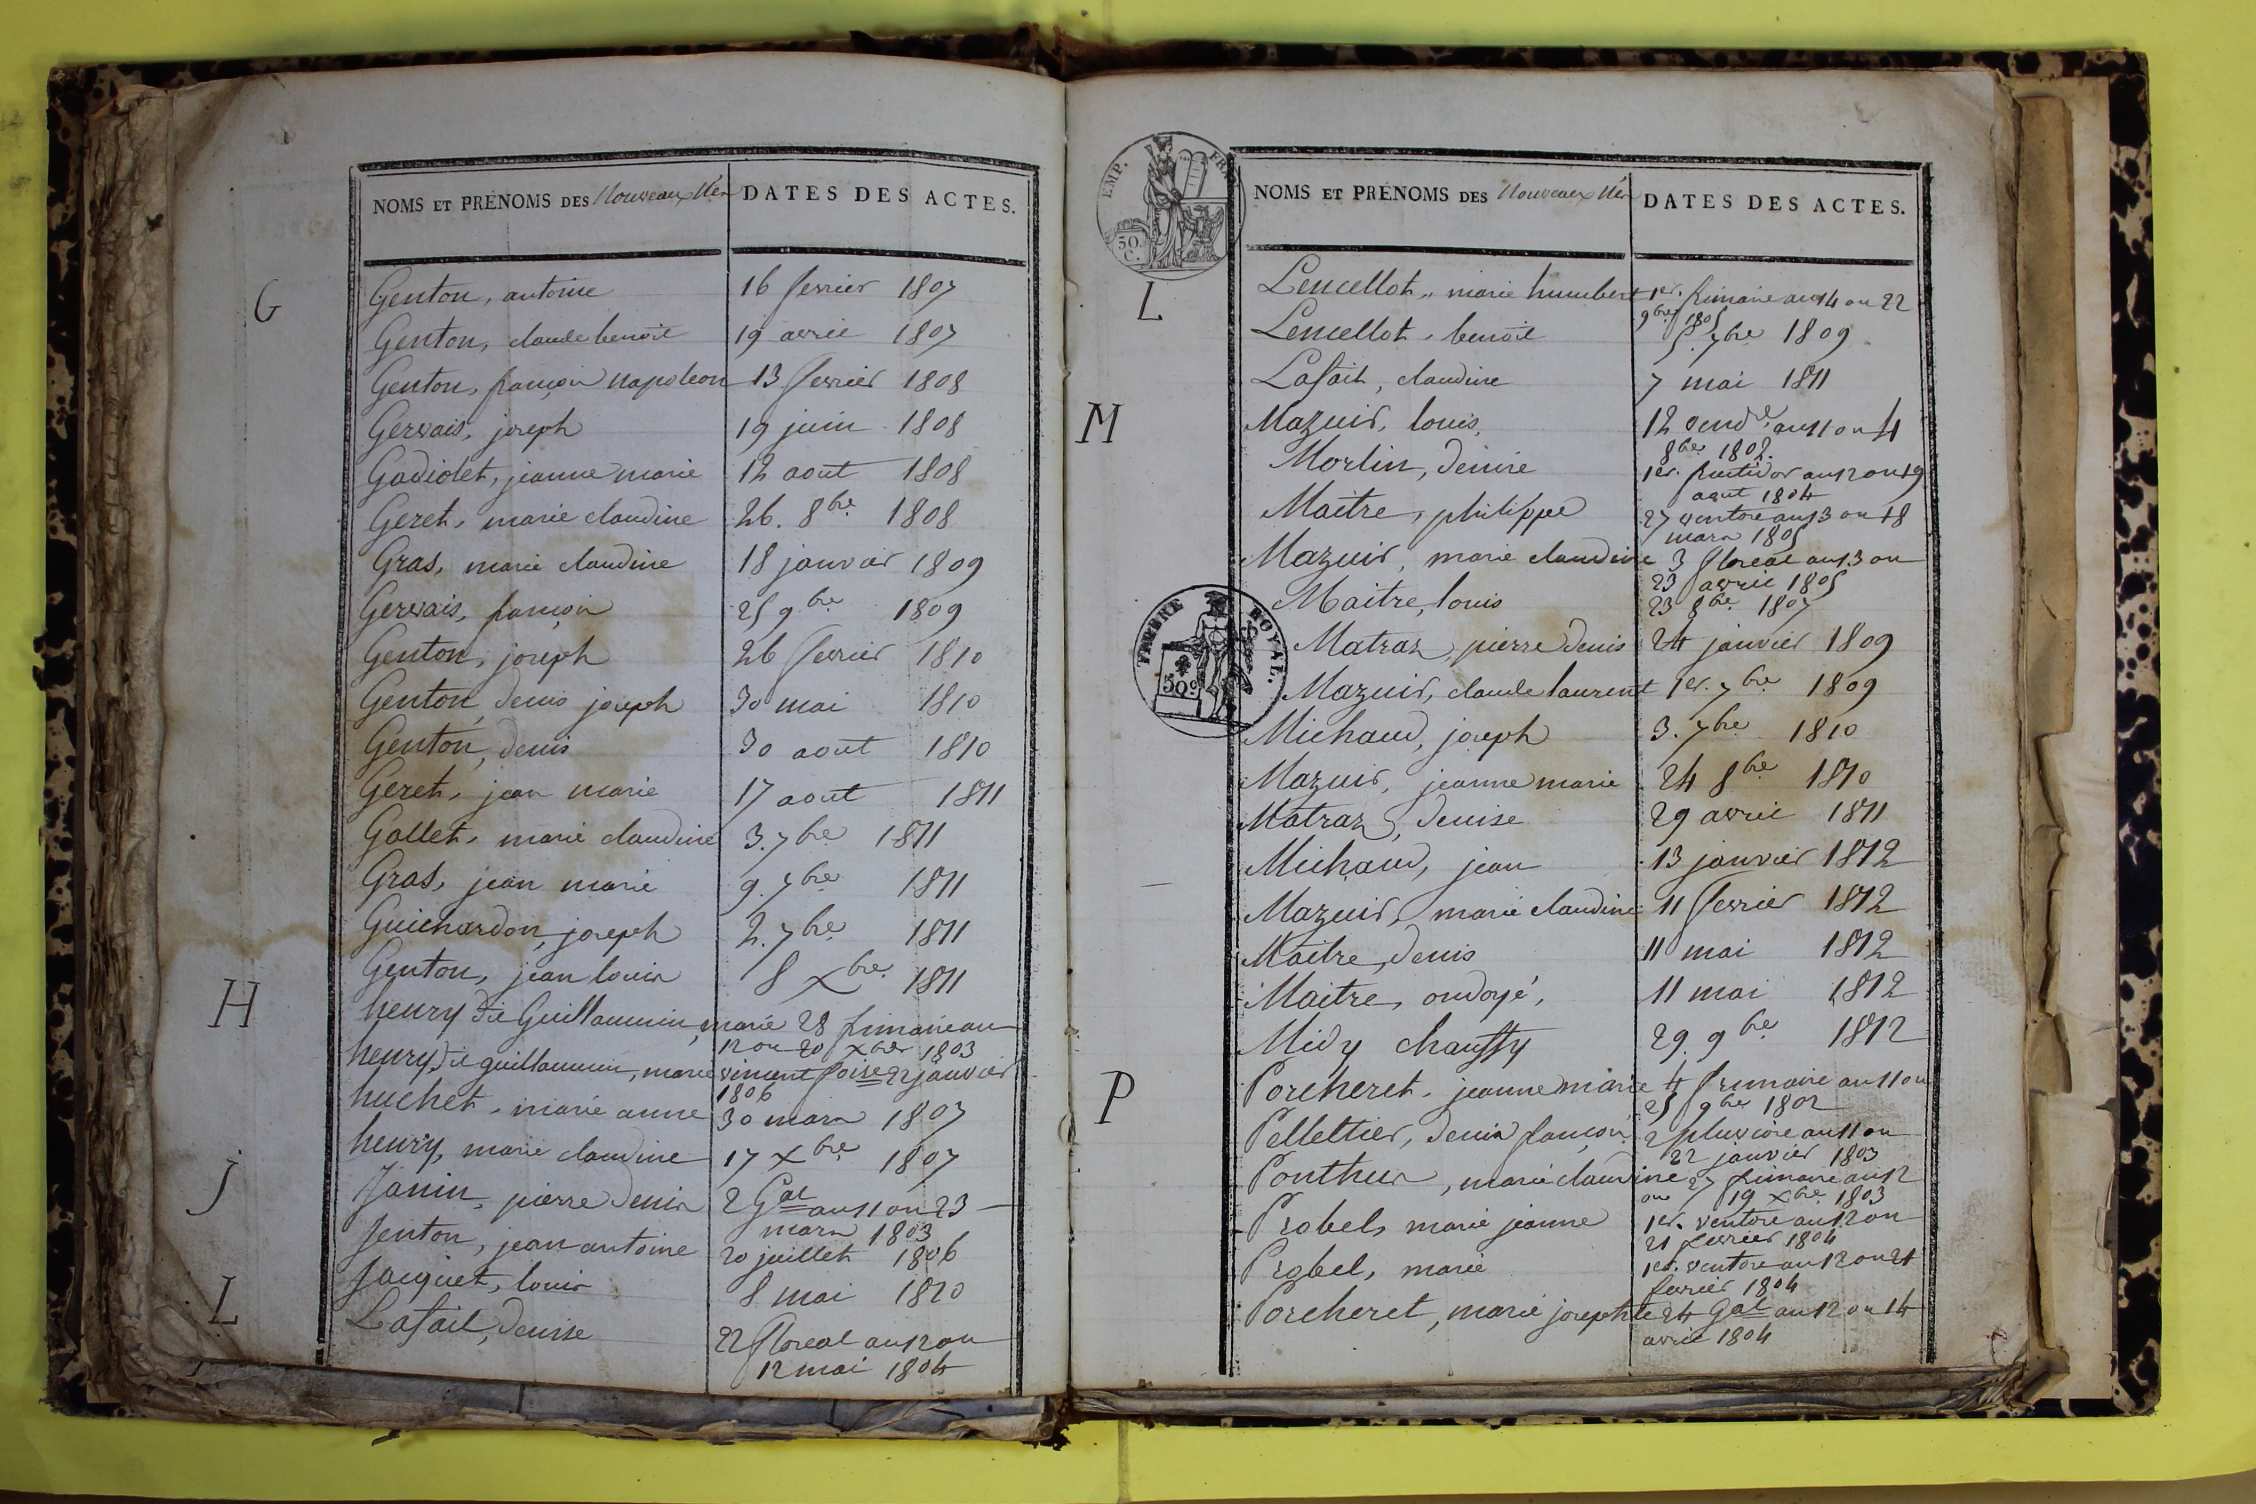 NOMS ET PRÉNOMS DES Nouveaux Nés
DATES DES ACTES.
G
Genton, antoine 16 fevrier 1807
Genton, claude benoit 19 avril 1807
Genton, françois napoleon 13 fevrier 1808
Gervais, joseph 19 juin 1808
Gadiolet, jeanne marie 12 aout 1808
Geret, marie claudine 26. 8bre 1808
Gras, marie claudine 18 janvier 1809
Gervais, françois 25 9bre 1809
Genton, joseph 26 fevrier 1810
Genton, denis joseph 30 mai 1810
Genton, denis 30 aout 1810
Geret, jean marie 17 aout 1811
Gallet, marie claudine 3. 7bre 1811
Gras, jean marie 9. 7bre 1811
Guichardon, joseph 2. 7bre 1811
Genton, jean louis 8 xbre 1811
H
henry dit Guillaumin, marie 28 frimaire an
12 ou 20 xbre 1803
henry dit guillaumin, marie vincent foise 22 janvier
1806
huchet, marie anne 30 mars 1807
henry, marie claudine 17 xbre 1807
J
Janin, pierre denis 2 Gal an 11 ou 23
mars 1803
Jenton, jean antoine 20 juillet 1806
Jacquet, louis 8 mai 1810
L
Lafait, denise 22 floreal an 12 ou
12 mai 1804
EMP. FR.
50 C.
NOMS ET PRÉNOMS DES Nouveaux Nés
DATES DES ACTES.
L
Lencellot, marie humbert 1er. frimaire an 14 ou 22
9bre 1805
Lencellot, benoit 5. 7bre 1809
Lafait, claudine 7 mai 1811
M
Mazuir, louis, 12 vendre an 11 ou 4
8bre 1802.
Morlin, denise 1er. fructidor an 12 ou 19
aout 1804
Maitre, philippe 27 ventose an 13 ou 18
mars 1805
Mazuir, marie claudine 3 floreal an 13 ou
23 avril 1805
Maitre, louis 23 8bre 1807
TIMBRE ROYAL.
50 c
Matraz, pierre denis 24 janvier 1809
Mazuir, claude laurent 1er. 7bre 1809
Michaud, joseph 3. 7bre 1810
Mazuir, jeanne marie 24 8bre 1810
Matraz, denise 29 avril 1811
Michaud, jean 13 janvier 1812
Mazuir, marie claudine 11 fevrier 1812
Maitre, denis 11 mai 1812
Maitre, ondoyé, 11 mai 1812
Midy chauffy 29. 9bre 1812
P
Porcheret, jeanne marie 4 frimaire an 11 ou
25 9bre 1802
Pelletier, denis françois 2 pluviose an 11 ou
22 janvier 1803
Ponthus, marie claudine 27 frimaire an 12
ou 19 xbre 1803
Probel, marie jeanne 1er. ventose an 12 ou
21 fevrier 1804
Probel, marie 1er. ventose an 12 ou 21
fevrier 1804
Porcheret, marie josephte 24 Gal an 12 ou 14
avril 1804